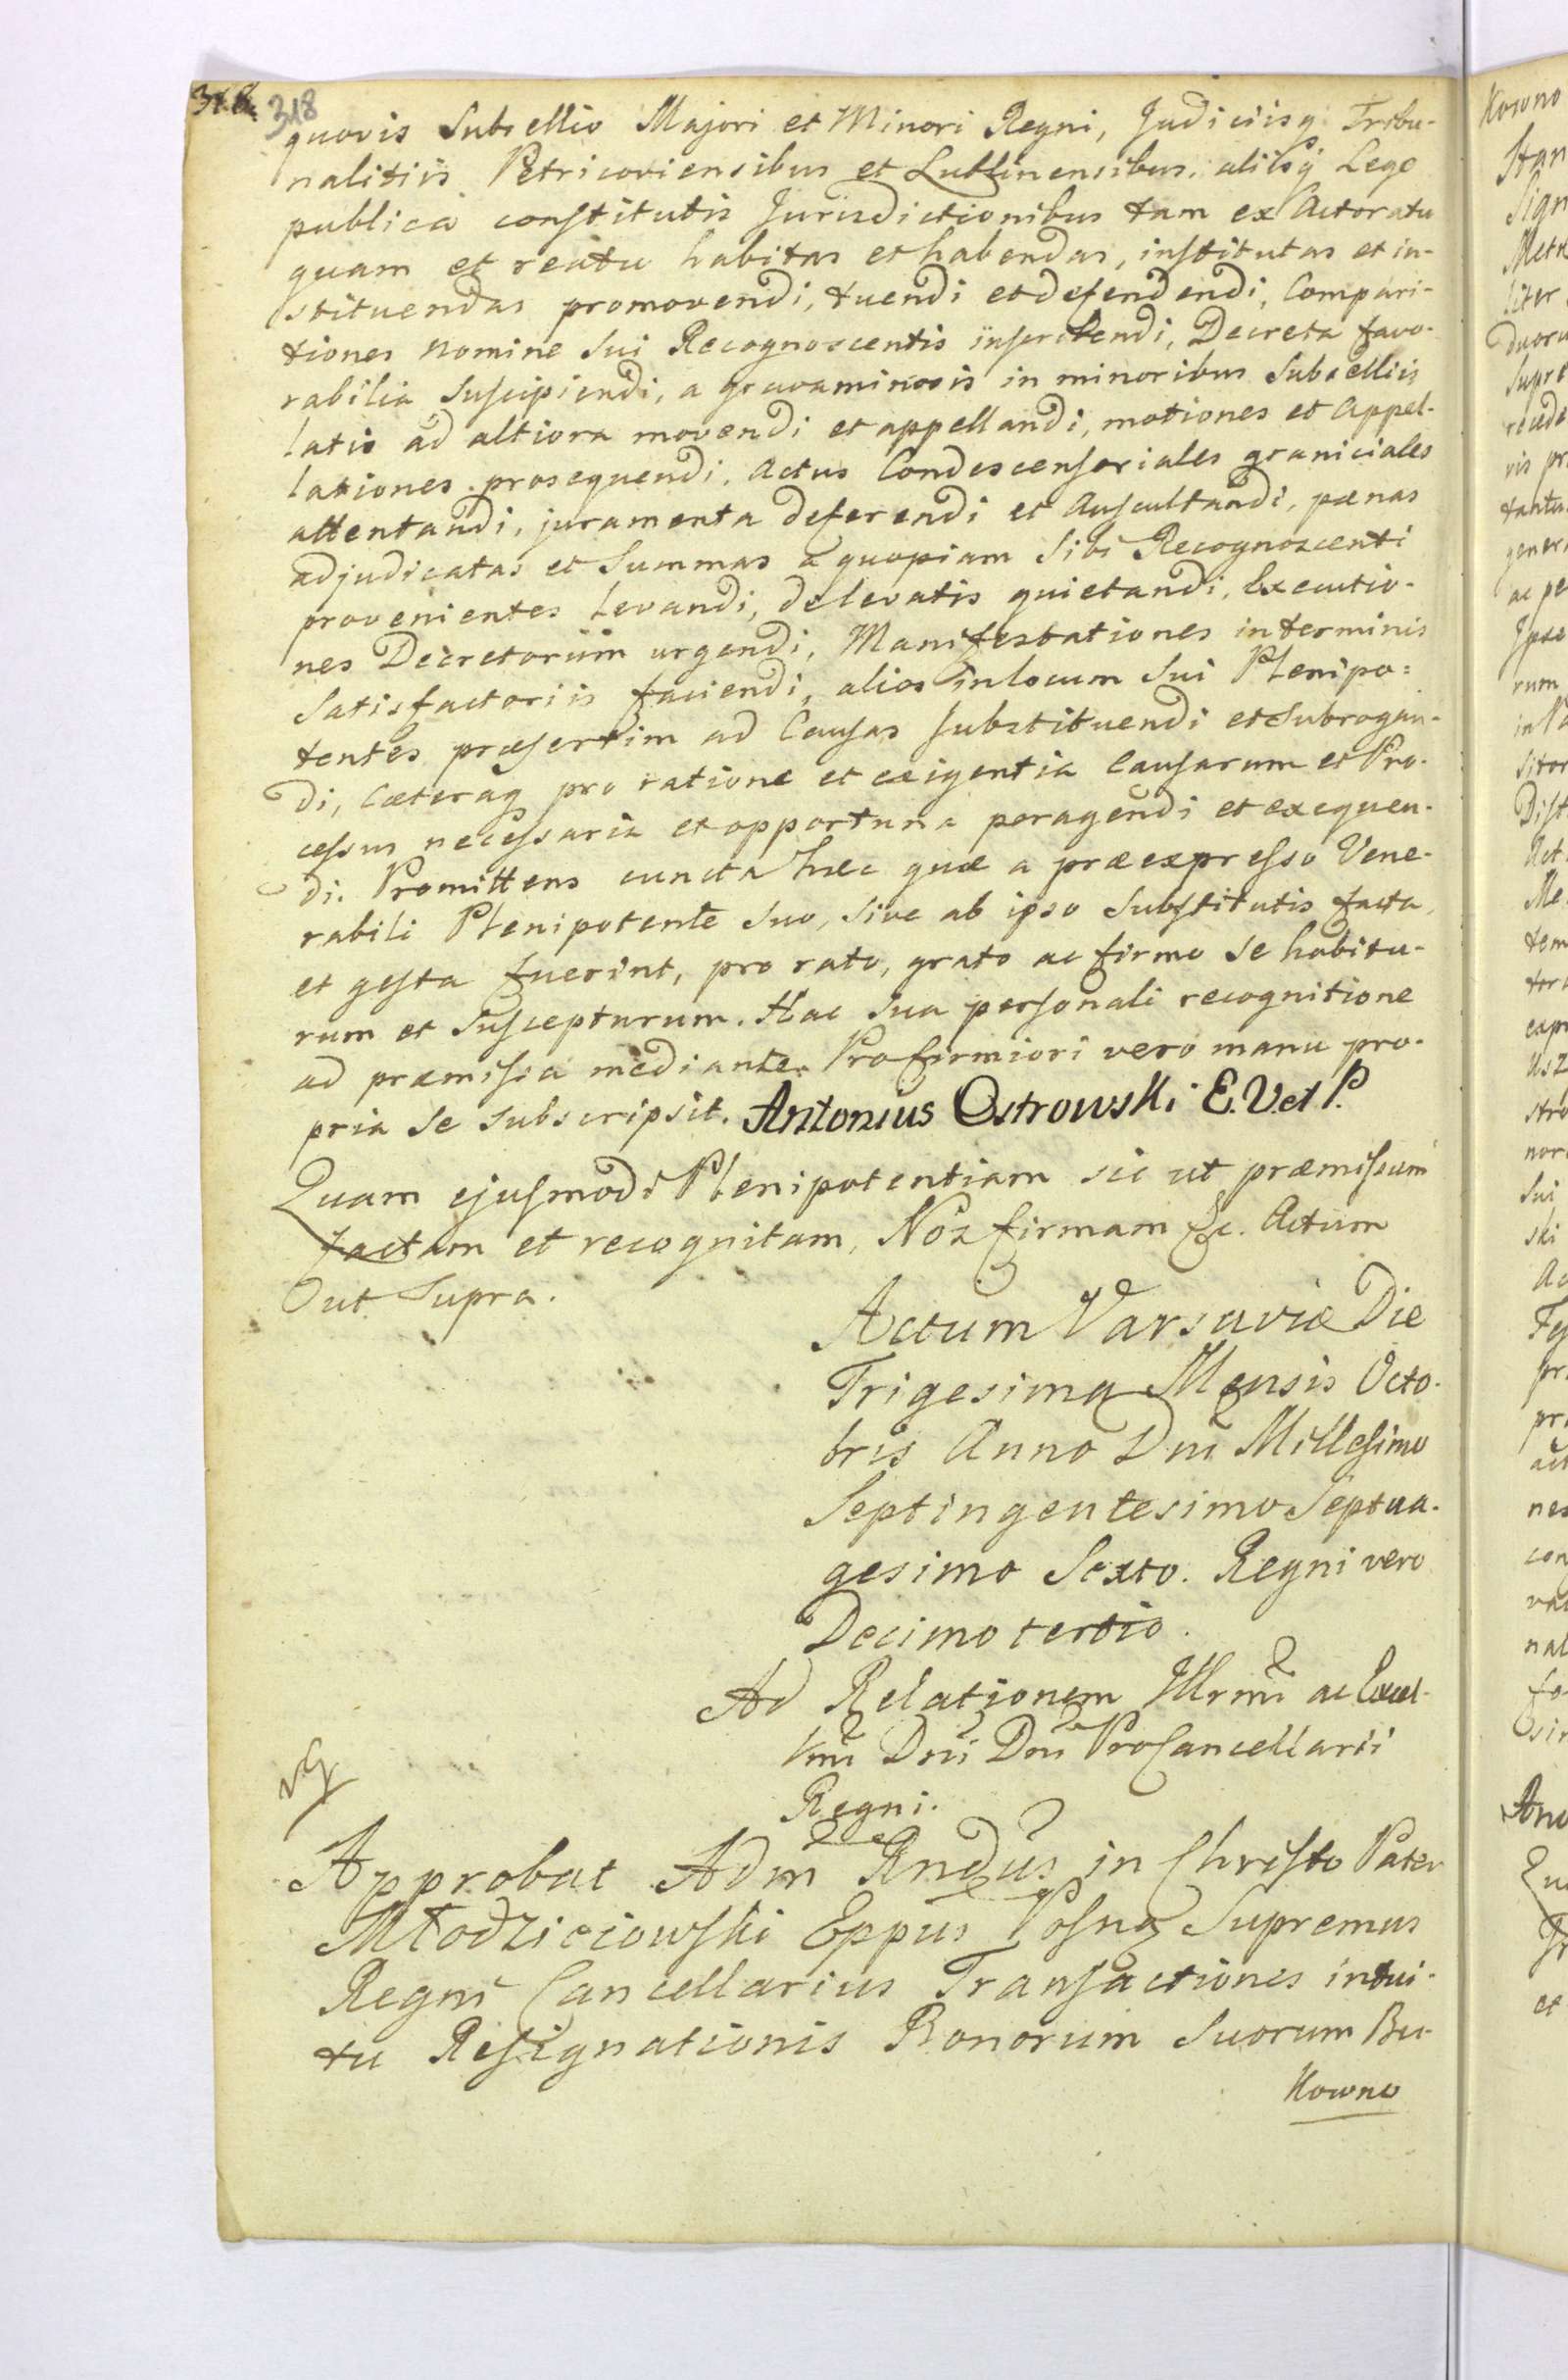 318
quovis Subsellio Majori et Minori Regni, Judiciisq Tribu-
nalitiis Petricoviensibus et Lublinensibus, aliisq Lege
publica constitutis Jurisdictionibus tam ex Actoratu
quam et reatu habitas et habendas, institutas et in-
stituendas promovendi, tuendi et defendendi, Compari-
tiones nomine Sui Recognoscentis inscribendi, Decreta favo-
rabilia Suscipiendi, a gravaminosis in minoribus Subselliis
latis ad altiora movendi et appellandi, motiones et Appel-
lationes prosequendi, Actus Condescensoriales graniciales
attentandi, juramenta deferendi et Auscultandi, pænas
adjudicatas et Summas a quopiam Sibi Recognoscenti
provenientes levandi, de levatis quietandi, Executio-
nes Decretorum urgendi, Manifestationes in terminis
Satisfactoriis faciendi, alios in locum Sui Plenipo=
tentes præsertim ad Causas Substituendi et Subrogan-
di, Cæteraq pro ratione et exigentia Causarum et Pro-
cessus necessaria et opportuna peragendi et exequen-
di. Promittens cuncta hæc quæ a præexpresso Vene-
rabili Plenipotente Suo, sive ab ipso Substitutis facta
et gesta fuerint, pro rato, grato ac firmo Se habitu-
rum et Suscepturum. Hac Sua personali recognitione
ad præmissa mediante. Pro firmiori vero manu pro-
pria Se subscripsit. Antonius Ostrowski E. V et P.
Quam ejusmodi Plenipotentiam sic ut præmissum
factam et recognitam, Nos firmam &c. Actum
ut Supra.
Actum Varsaviæ Die
Trigesima Mensis Octo-
bris Anno Dni Millesimo
Septingentesimo Septua-
gesimo Sexto. Regni vero
Decimo tertio.
Ad Relationem Illrmi ac Excel-
lmi Dni Dni ProCancellarii
Regni.
Approbat Adm Rndus in Christo Pater
Młodzieiowski Eppus Posn Supremus
Regni Cancellarius Transactiones intui-
tu Resignationis Bonorum Suorum Bu-
kowno